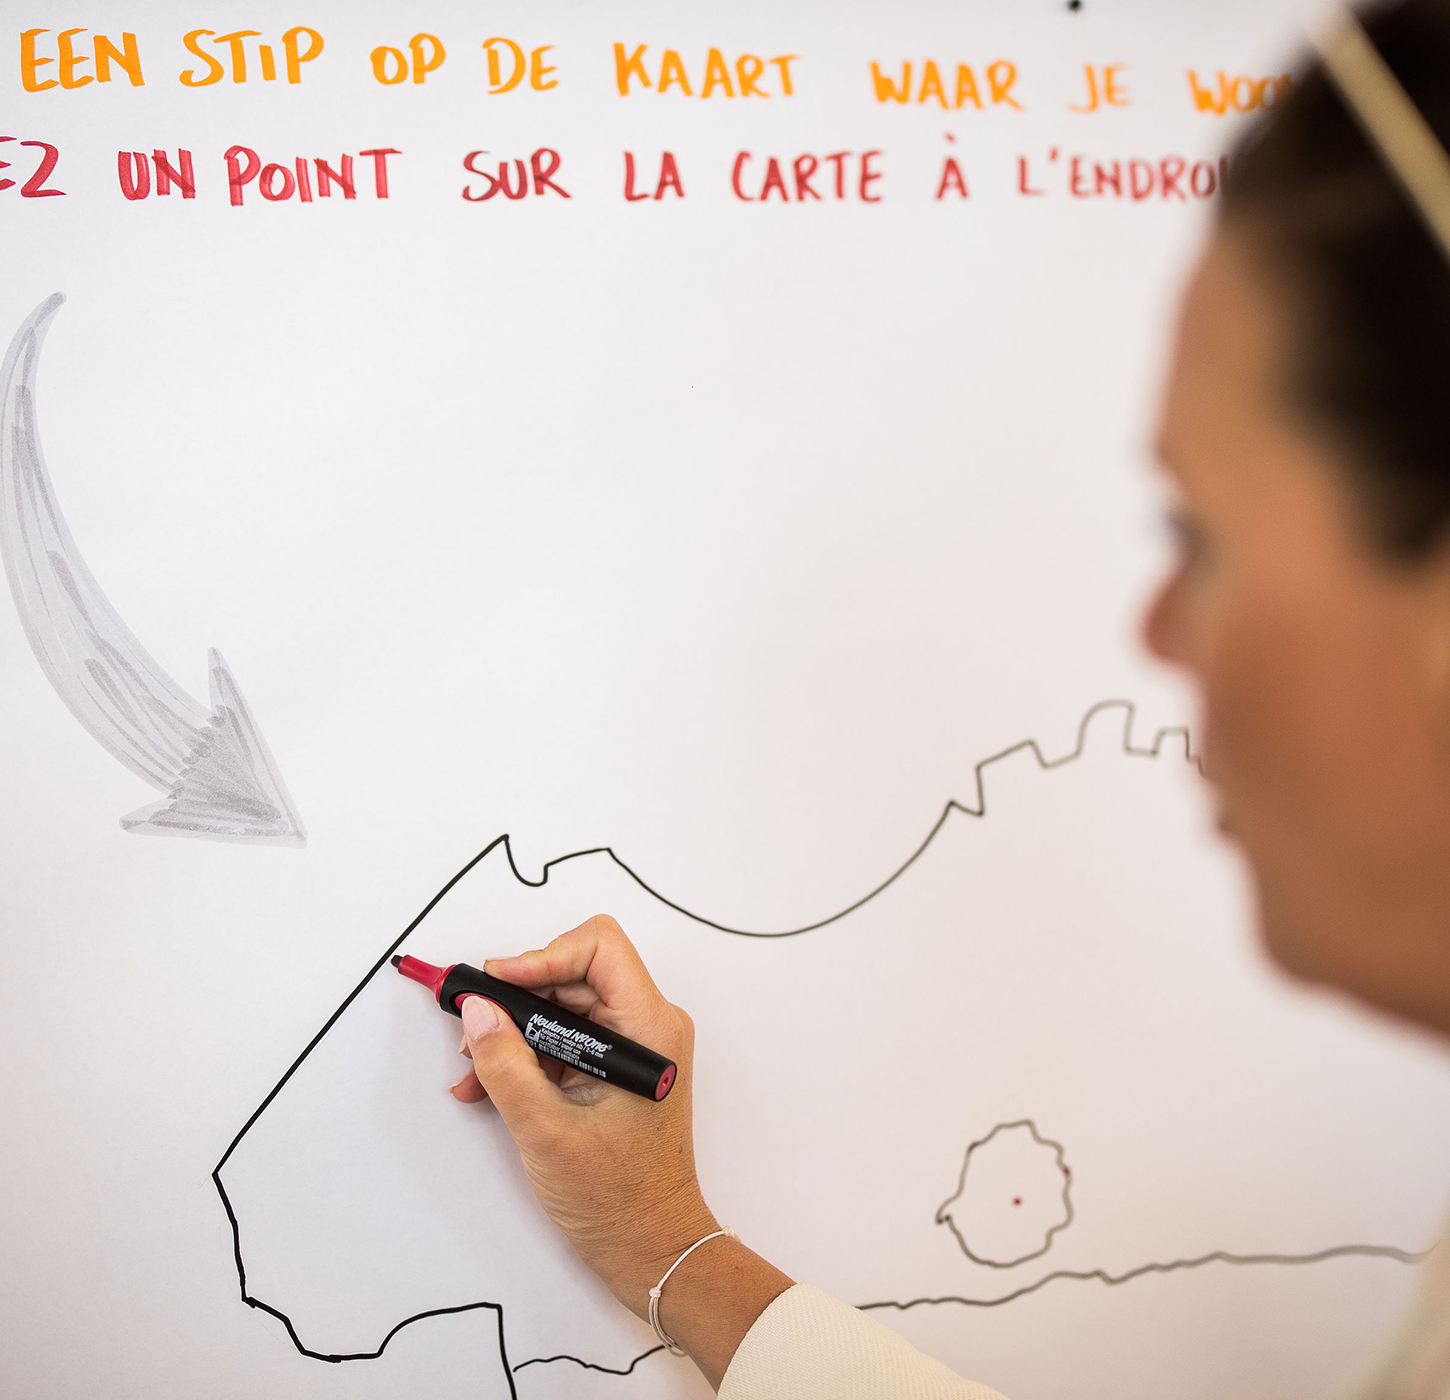 EEN STIP OP DE KAART WAAR JE
UN POINT SUR LA CARTE À
Neuland NºOne®